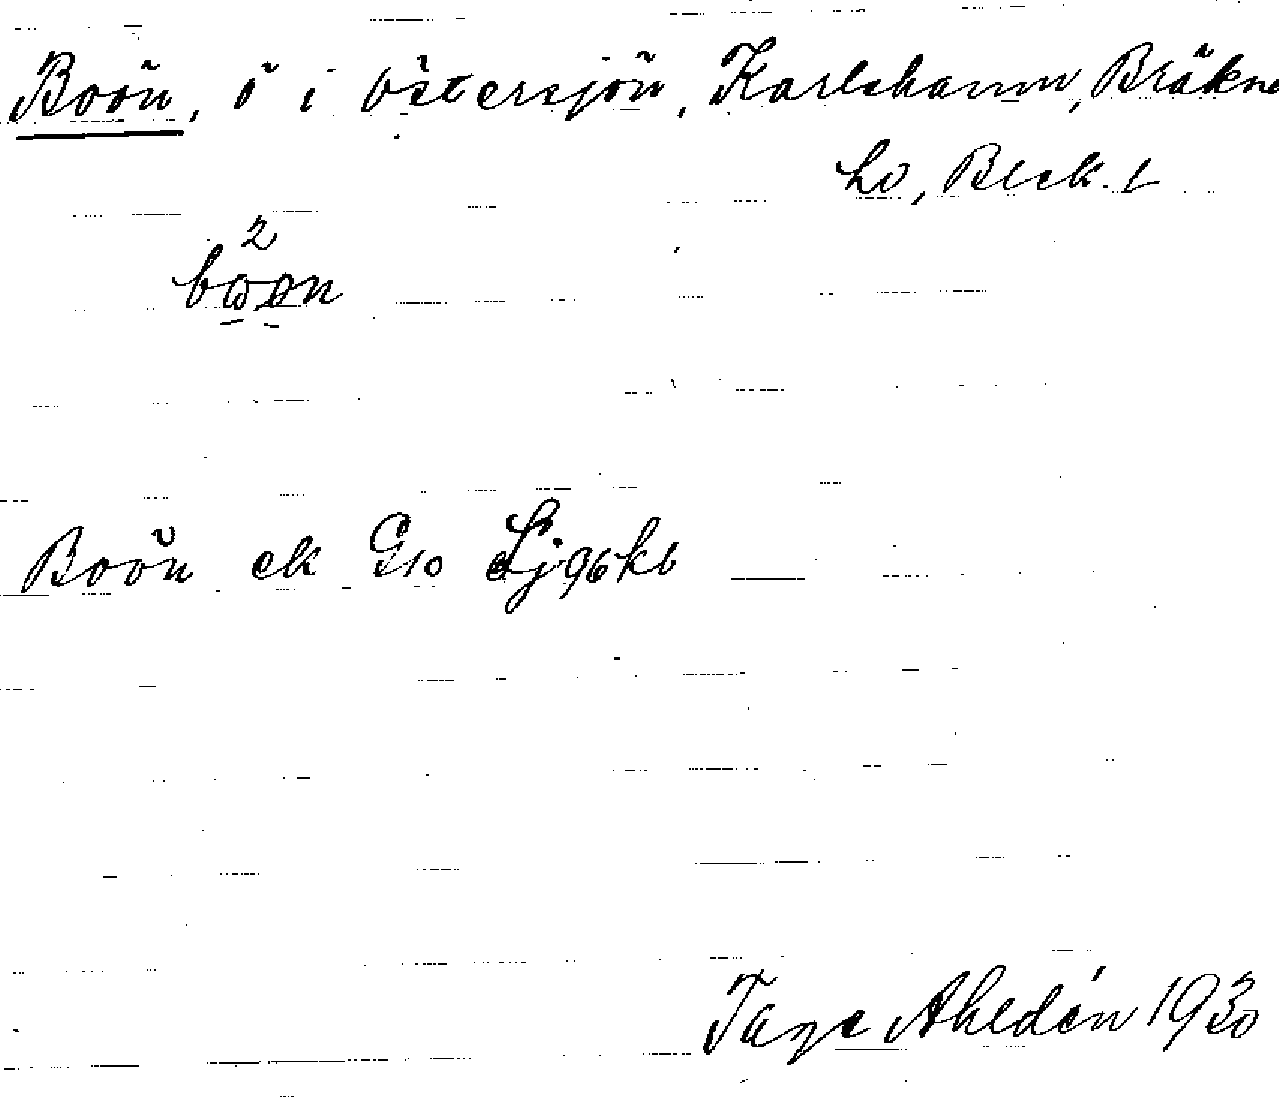 Boön, ö i Östersjön, Karlshamn, Bräkne
hd, Blek. l
2
bωøn
Boön ek G10 Lj 96 kb
Tage Ahldén 1930